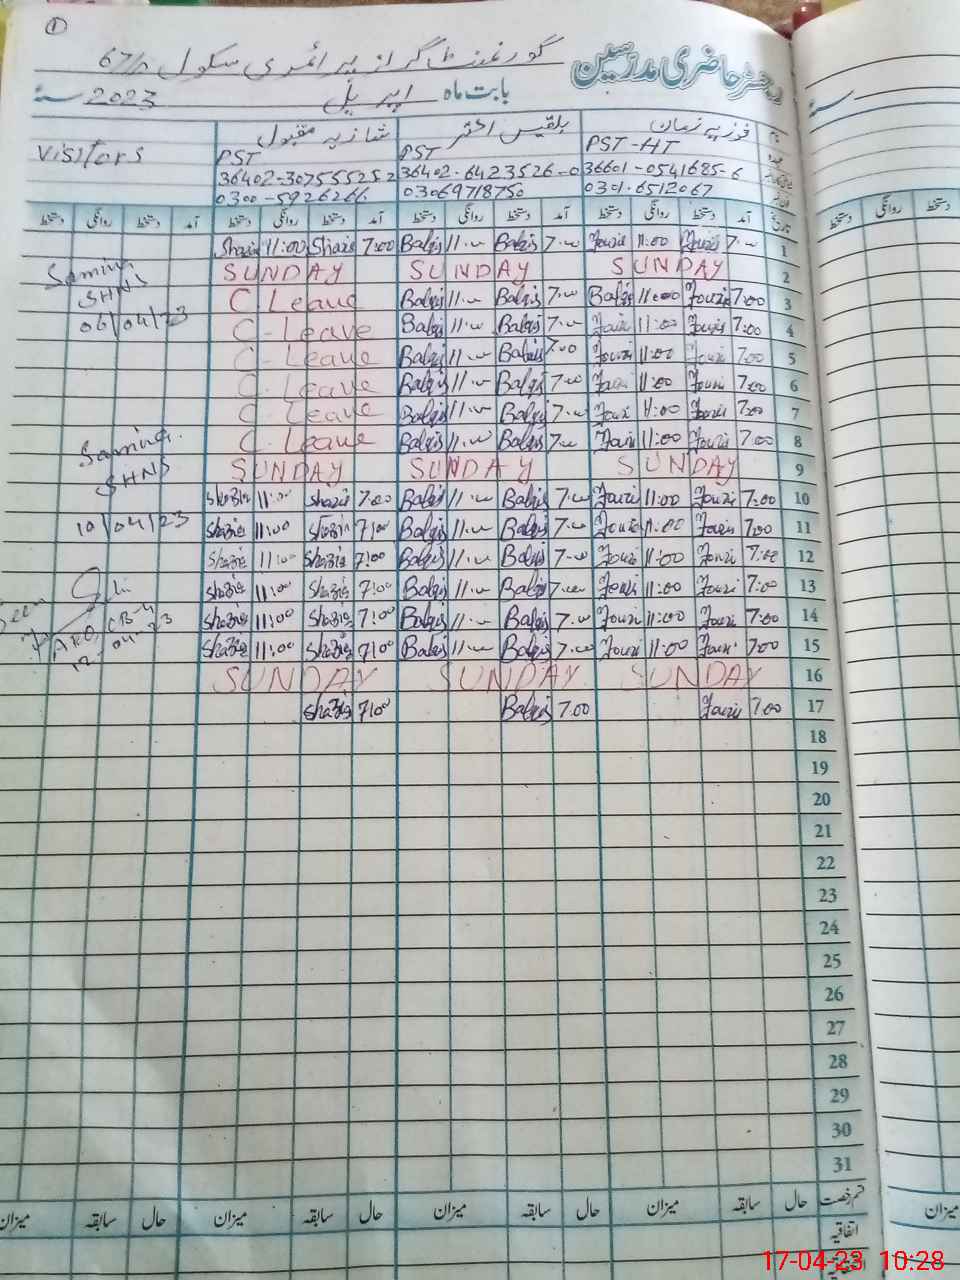 ①
گورنمنٹ گرلز پرائمری سکول 67/D رجسٹر حاضری مدرسین
بابت ماہ اپریل 2023 سنہ
نام فوزیہ زمان بلقیس اختر شازیہ مقبول
عہدہ PST-HT PST PST Visitors
36601-0541685-6 36402-6423526-0 36402-307555252
0301.6512067 03069718750 0300-5926266
تاریخ آمد دستخط روانگی دستخط آمد دستخط روانگی دستخط آمد دستخط روانگی دستخط آمد دستخط روانگی دستخط
1 7.00 Fouzi 11:00 Fouzi 7.00 Balqis 11.00 Balqis 7:00 Shazia 11:00 Shazia
2 SUNDAY SUNDAY SUNDAY
3 7:00 Fouzi 11:00 Balqis 7.00 Balqis 11.00 Balqis C Leave
4 7:00 Fouzi 11:00 Fouzi 7.00 Balqis 11.00 Balqis C-Leave
5 7:00 Fouzi 11:00 Fouzi 7.00 Balqis 11.00 Balqis C-Leave
6 7:00 Fouzi 11:00 Fouzi 7.00 Balqis 11.00 Balqis C-Leave
7 7:00 Fouzi 11:00 Fouzi 7.00 Balqis 11.00 Balqis C-Leave
8 7:00 Fouzi 11:00 Fouzi 7.00 Balqis 11.00 Balqis C-Leave
9 SUNDAY SUNDAY SUNDAY
10 7:00 Fouzi 11:00 Fouzi 7.00 Balqis 11.00 Balqis 7:00 Shazia 11:00 Shazia
11 7:00 Fouzi 11:00 Fouzi 7.00 Balqis 11.00 Balqis 7:00 Shazia 11:00 Shazia
12 7:00 Fouzi 11:00 Fouzi 7.00 Balqis 11.00 Balqis 7:00 Shazia 11:00 Shazia
13 7:00 Fouzi 11:00 Fouzi 7.00 Balqis 11.00 Balqis 7:00 Shazia 11:00 Shazia
14 7:00 Fouzi 11:00 Fouzi 7.00 Balqis 11.00 Balqis 7:00 Shazia 11:00 Shazia
15 7:00 Fouzi 11:00 Fouzi 7.00 Balqis 11.00 Balqis 7:00 Shazia 11:00 Shazia
16 SUNDAY SUNDAY SUNDAY
17 7.00 Fouzi 7.00 Balqis 7:00 Shazia
18
19
20
21
22
23
24
25
26
27
28
29
30
31
Samina
SHNS
06/04/23
Samina
SHNS
10/04/23
Seen
AEO, CB-4
12-04-23
قسم رخصت حال سابقہ میزان حال سابقہ میزان حال سابقہ میزان حال سابقہ میزان
اتفاقیہ
سنہ
دستخط روانگی دستخط
میزان
17-04-23 10:28